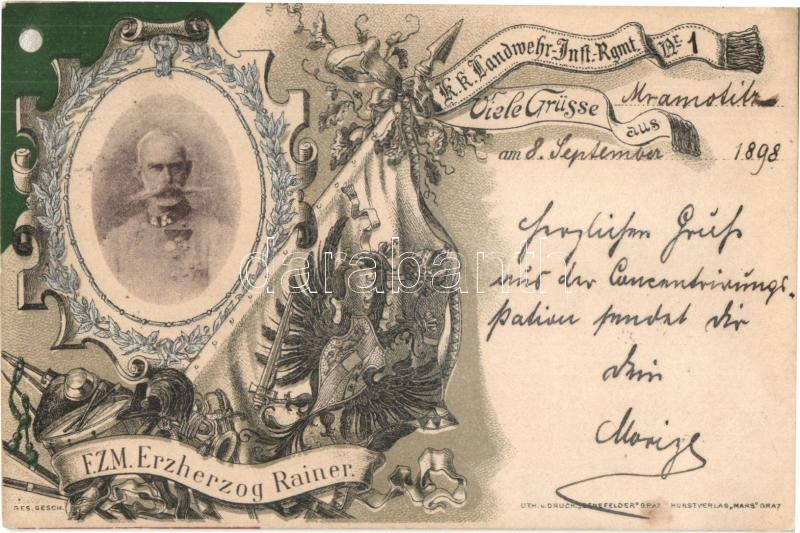 k.k. Landwehr-Inft.-Rgmt. Nr. 1
Viele Grüsse aus Mramotitz
am 8. September 1898
Herzlichen Gruß
aus der Concentrirungs-
station sendet dir
dein
Moriz
F.Z.M. Erzherzog Rainer.
GES. GESCH.
LITH. u. DRUCK „SENEFELDER" GRAZ KUNSTVERLAG „MARS" GRAZ
darabanth